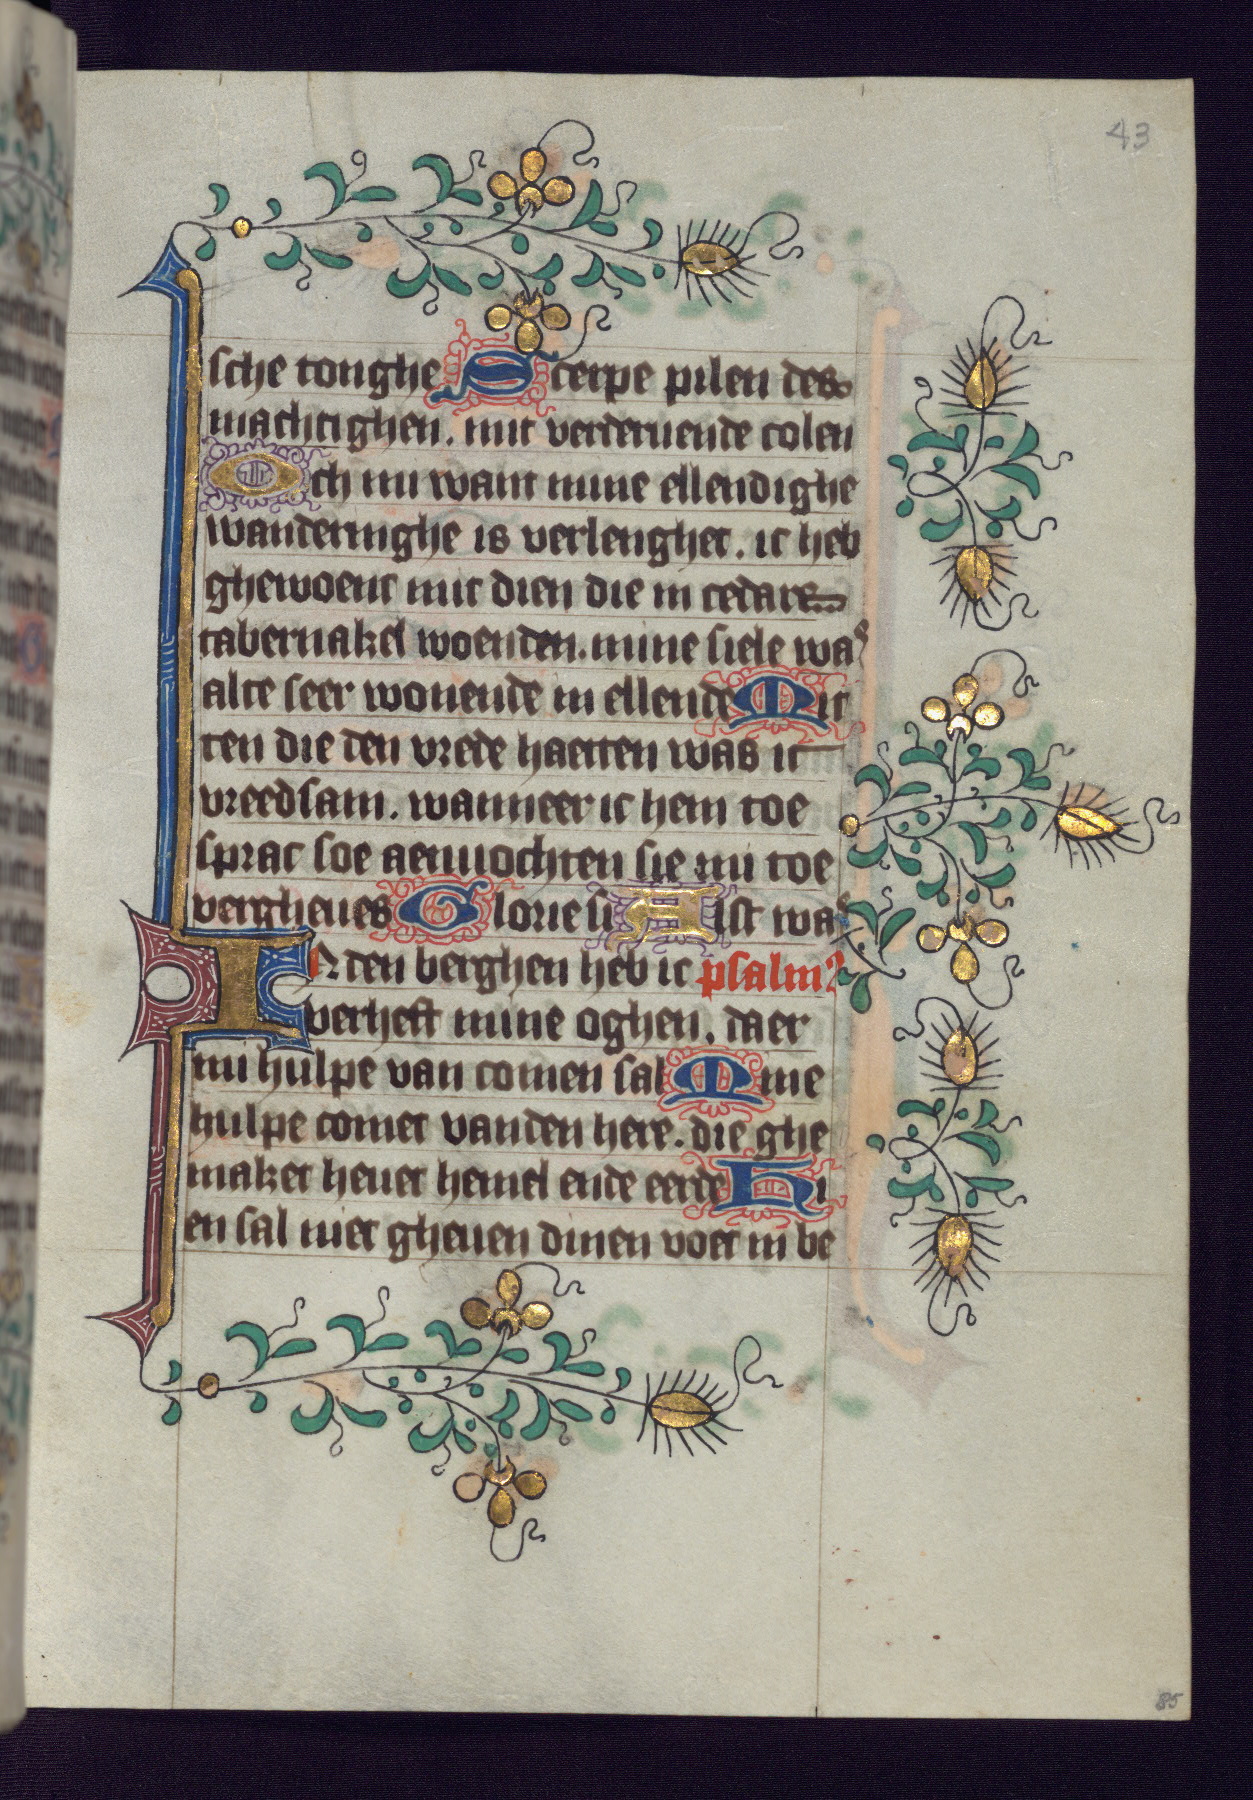 43
sche tonghe Scerpe pilen des
machtighen. mit verderuende colen
Och mi want mine ellendighe
wanderinghe is verlenghet. ic heb
ghewoent mit dien die in cedare
tabernakel woenden. mine siele was
alte seer wonende in ellende Mit
ten die den vrede haetten was ic
vreedsam. wanneer ic hem toe
sprac soe aenuochten sie mi toe
vergheues Glorie si Alst was
In den berghen heb ic psalm
verheft mine oghen. daer
mi hulpe van comen sal Mine
hulpe comet vanden here. die ghe
maket heuet hemel ende eerde Hi
en sal niet gheuen dinen voet in be
85